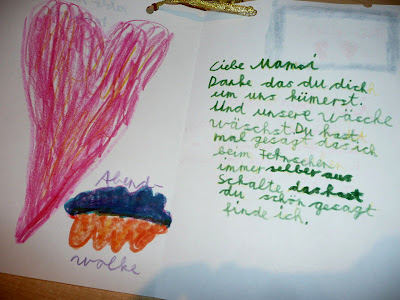 Abend-
wolke
Liebe Mami
Danke das du dich
um uns kümerst.
Und unsere Wäsche
wäschst. Du hast
mal gesagt das ich
beim Fernsehen
immer selber aus
schalte das hast
du schön gesagt
finde ich.